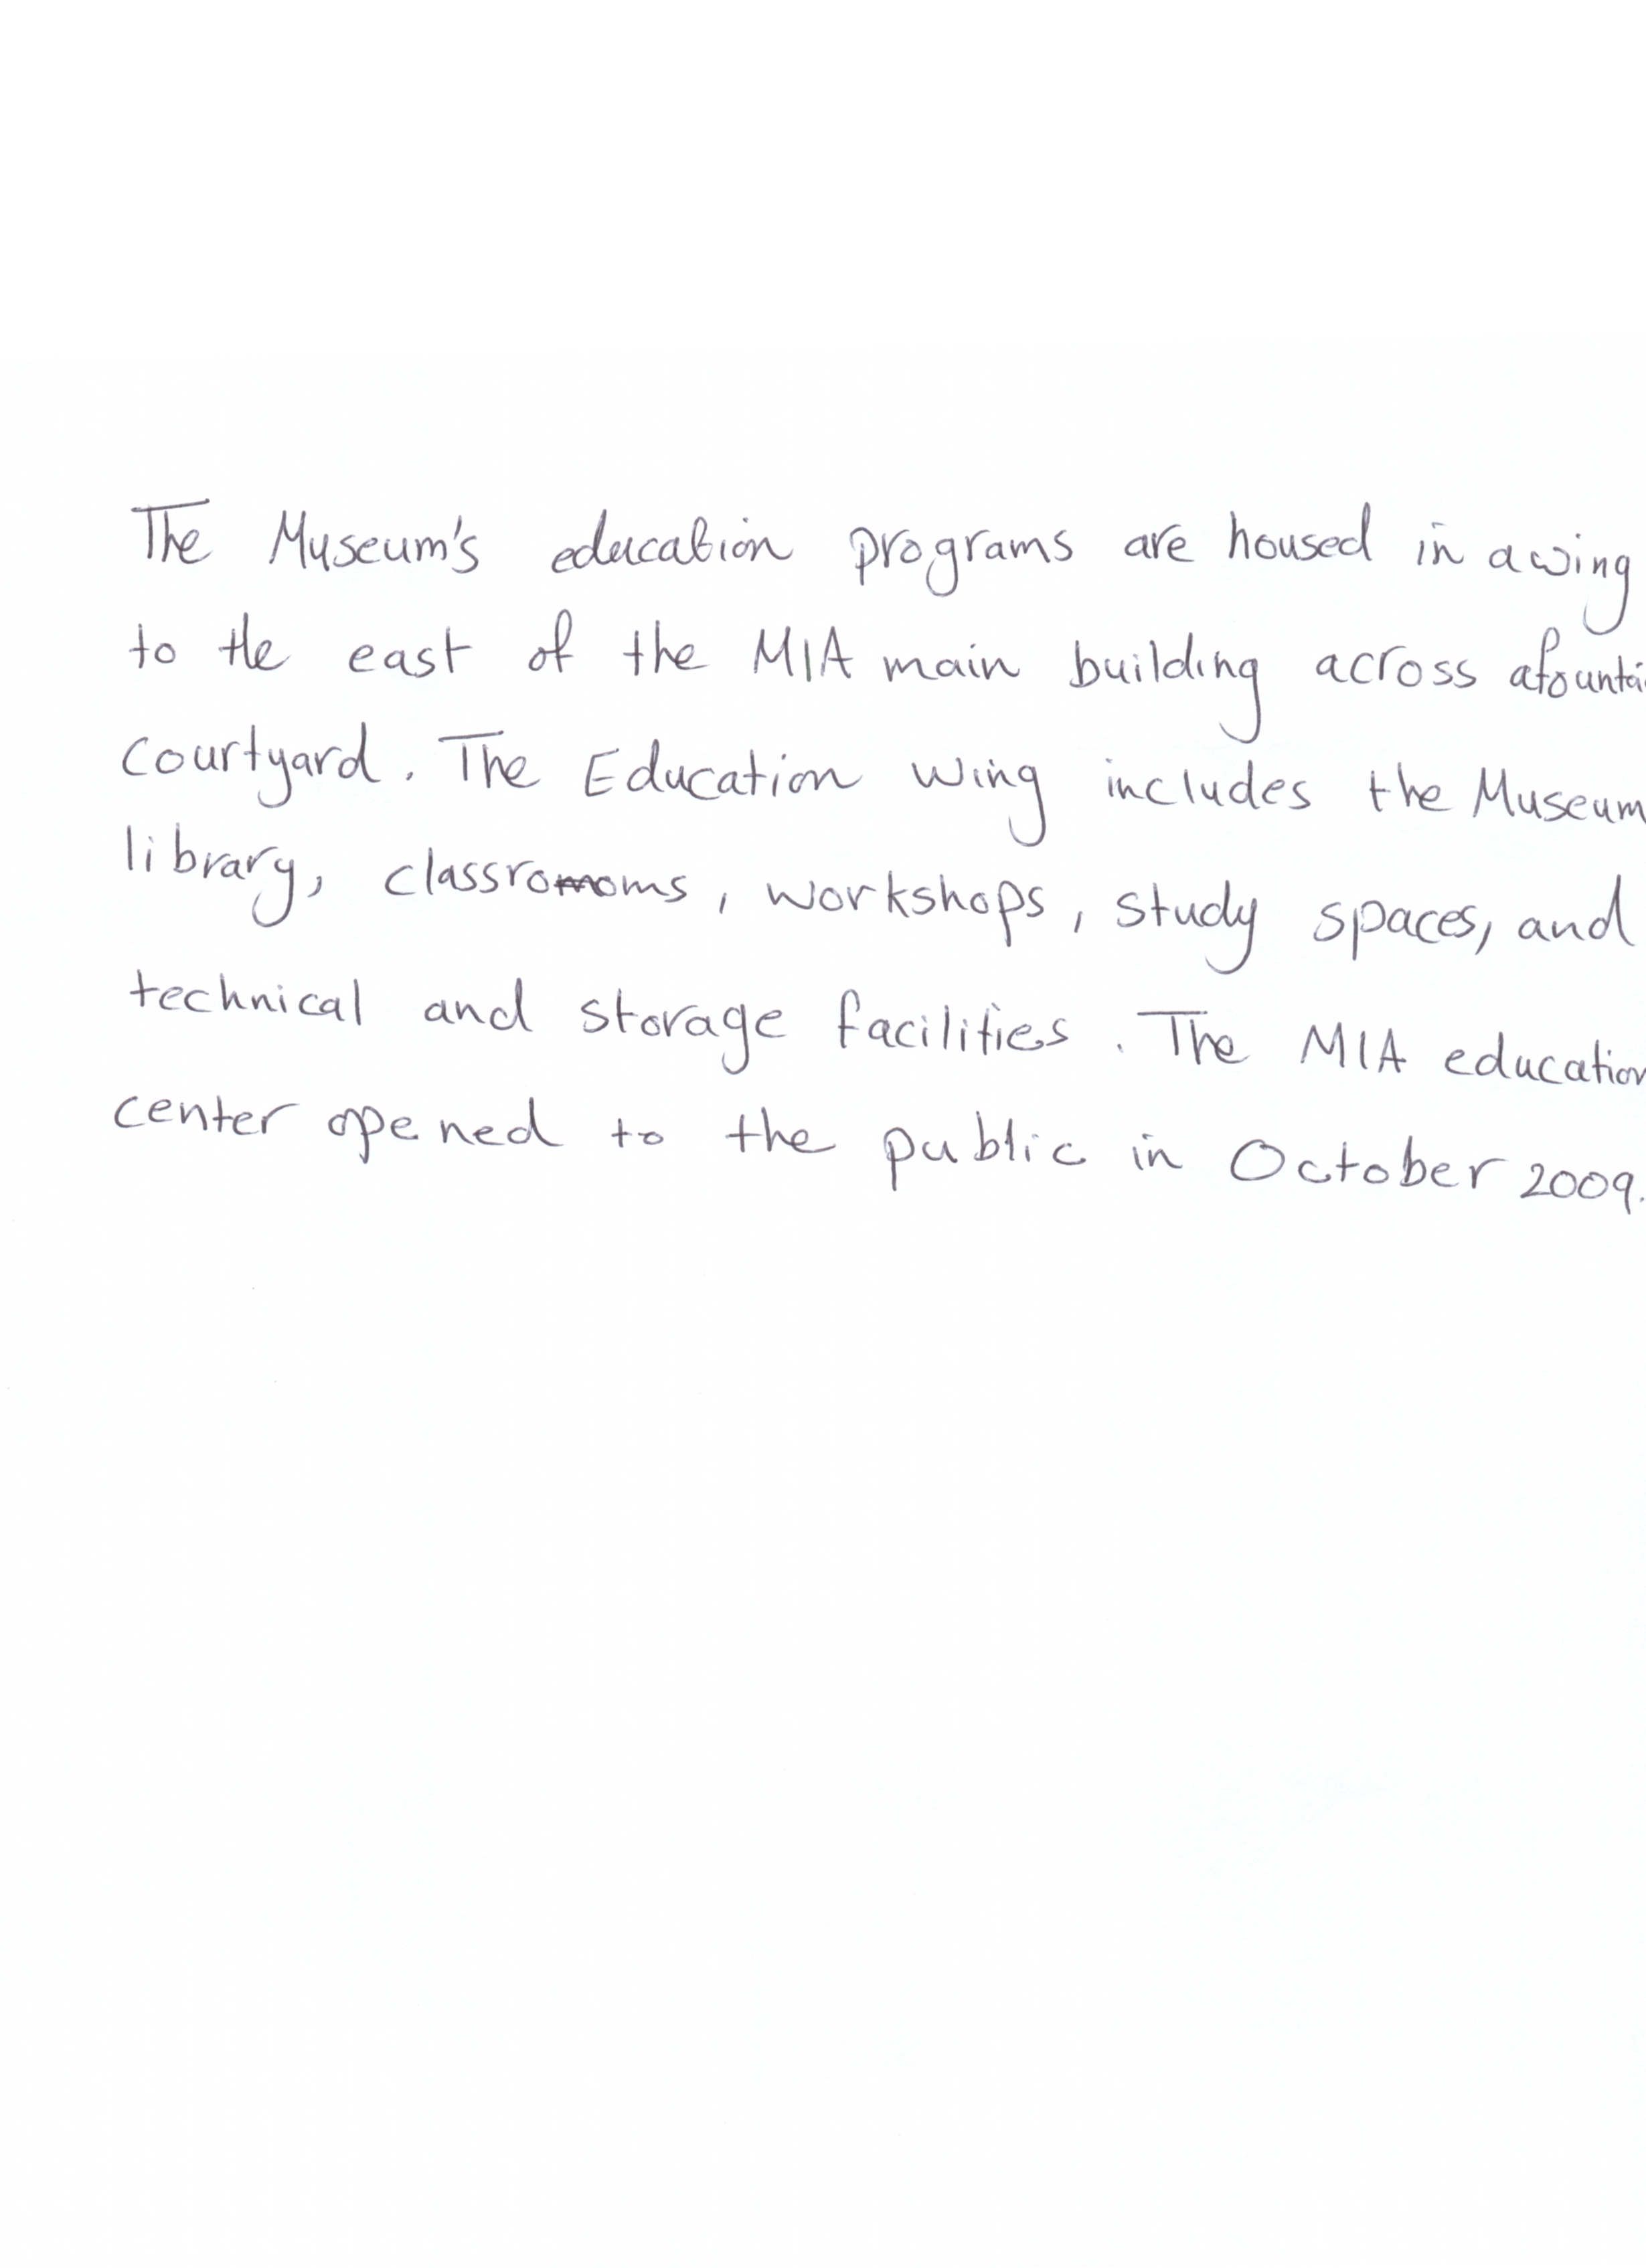 The Museum's education programs are housed in a wing
to the east of the MIA main building across a fountai
courtyard. The Education wing includes the Museum
library, classrooms, workshops, study spaces, and
technical and storage facilities. The MIA education
center opened to the public in October 2009.